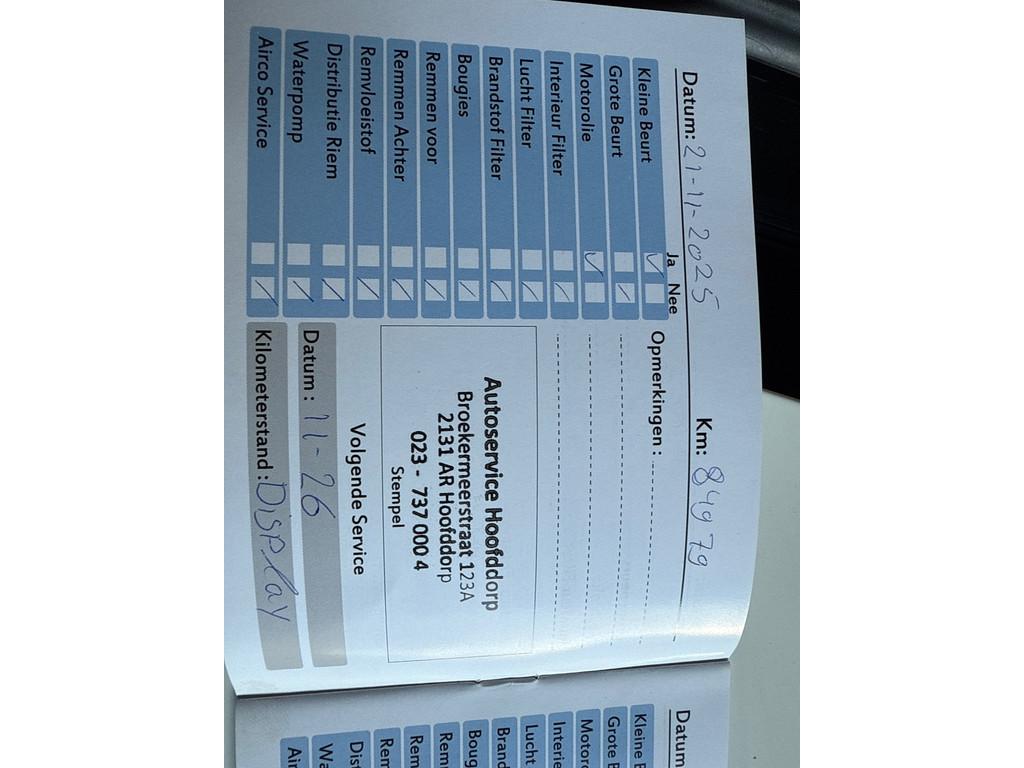 Datum: 21-11-2025 Km: 84979
Ja Nee
Kleine Beurt
Grote Beurt
Motorolie
Interieur Filter
Lucht Filter
Brandstof Filter
Bougies
Remmen voor
Remmen Achter
Remvloeistof
Distributie Riem
Waterpomp
Airco Service
Opmerkingen :
Autoservice Hoofddorp
Broekermeerstraat 123A
2131 AR Hoofddorp
023 - 737 000 4
Stempel
Volgende Service
Datum : 11-26
Kilometerstand : Display
Datum
Kleine B
Grote B
Motoro
Interie
Lucht
Brand
Boug
Rem
Rem
Rem
Dist
Wa
Air